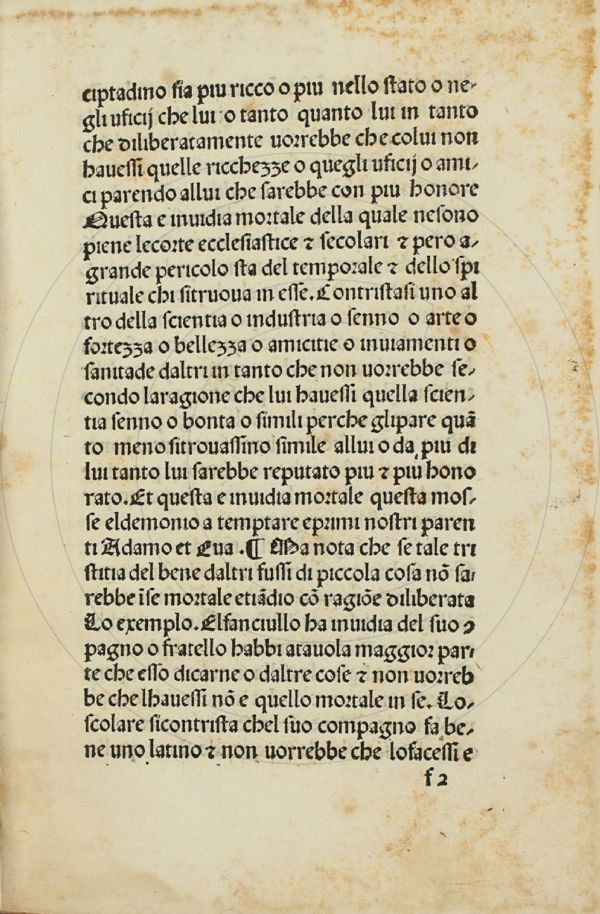 ciptadino ſia piu ricco o piu nello ſtato o ne⸗
gli uficij che lui o tanto quanto lui in tanto
che diliberatamente uorrebbe che colui non
haueſſi quelle ricchezze o quegli uficij o ami⸗
ci parendo allui che ſarebbe con piu honore
Queſta e inuidia mortale della quale neſono
piene lecorte eccleſiaſtice ⁊ ſecolari ⁊ pero a⸗
grande pericolo ſta del temporale ⁊ dello ſpi
rituale chi ſitruoua in eſſe. Contriſtaſi uno al
tro della ſcientia o induſtria o ſenno o arte o
fortezza o bellezza o amicitie o inuiamenti o
ſanitade daltri in tanto che non uorrebbe ſe⸗
condo laragione che lui haueſſi quella ſcien⸗
tia ſenno o bonta o ſimili perche glipare quã
to meno ſitrouaſſino ſimile allui o da piu di
lui tanto lui ſarebbe reputato piu ⁊ piu hono
rato. Et queſta e inuidia mortale queſta moſ⸗
ſe eldemonio a temptare eprimi noſtri paren
ti Adamo et Eua . ¶ Ma nota che ſe tale tri
ſtitia del bene daltri fuſſi di piccola coſa nõ ſa⸗
rebbe ĩſe mortale etiãdio cõ ragiõe diliberata
Lo exemplo. Elfanciullo ha inuidia del ſuo ꝯ
pagno o fratello habbi atauola maggior par⸗
te che eſſo dicarne o daltre coſe ⁊ non uorreb
be che lhaueſſi nõ e quello mortale in ſe. Lo⸗
ſcolare ſicontriſta chel ſuo compagno fa be⸗
ne uno latino ⁊ non uorrebbe che lofaceſſi e
f 2